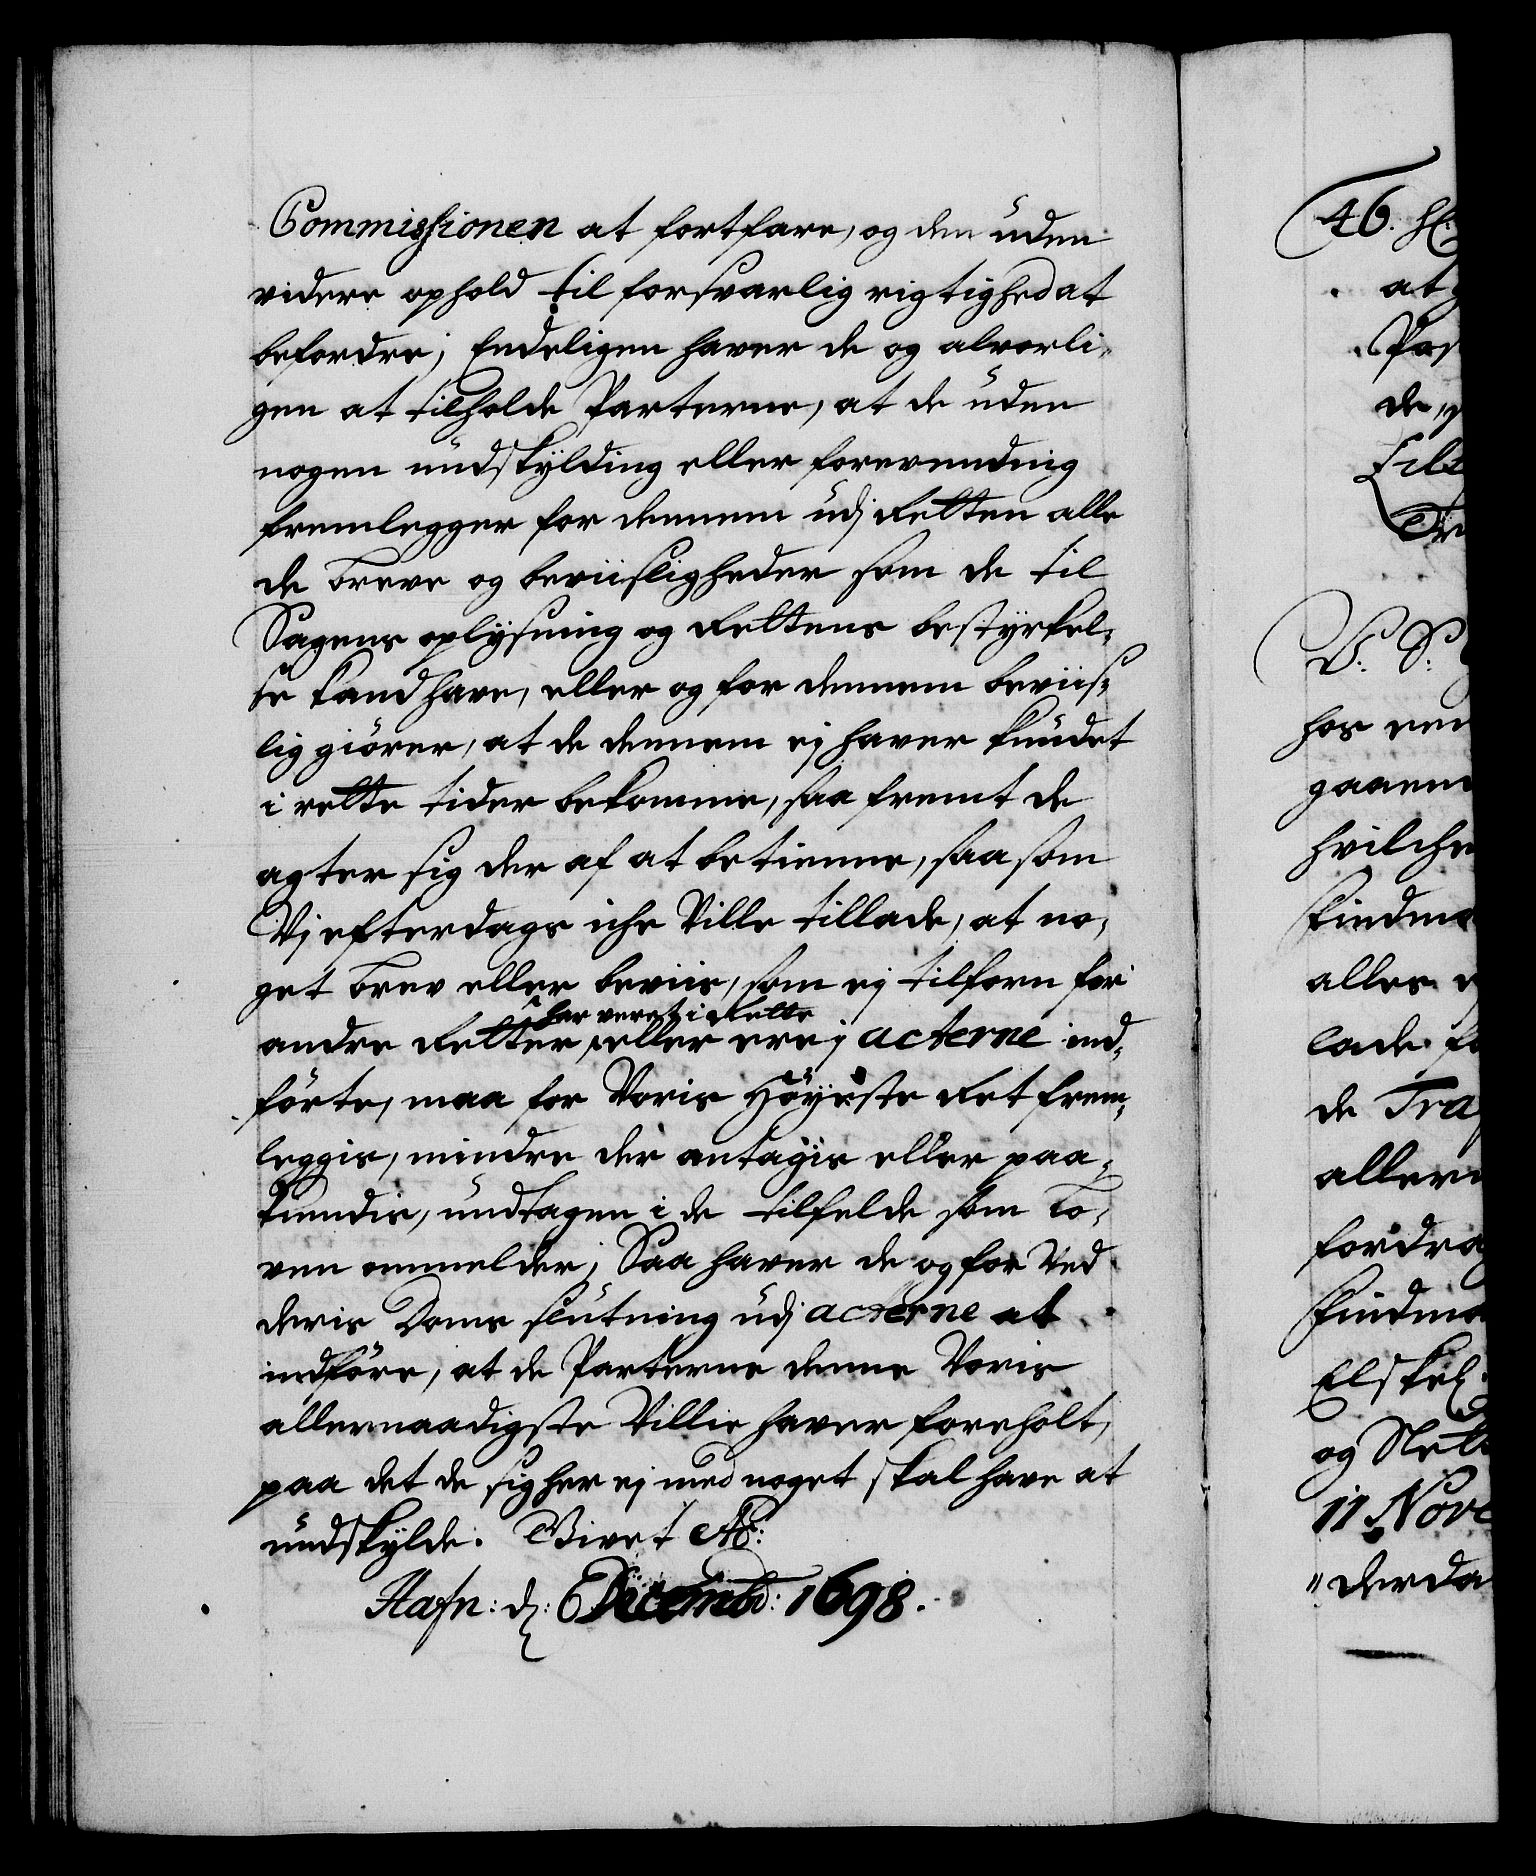 Commissionen at fortfare, og den uden
videre ophold til forsvarlig rigtighed at
befordre; Endeligen haver de og alvorli-
gen at tilholde Parterne, at de uden
nogen undskylding eller forevending
fremlegger for dennem udj Retten alle
de breve og beviisligheder som de til
Sagens oplysning og Rettens bestyrkel-
se kand have, eller og for dennem beviis-
lig giörer, at de dennem ej haver kundet
i rette tider bekomme, saa fremt de
agter sig der af at betienne, saa som
Vj efterdags iche Ville tillade, at no-
get brev eller beviis, som ej tilforn for
har veret i Rette
andre Retter, eller ere j acterne ind-
förte, maa for Voris Höyeste Ret frem-
leggis, mindre der antagis eller paa-
kiendis, undtagen i de tilfelde som Lo-
ven ommelder; Saa haver de og for Ved
deris Doms slutning udj acterne at
indföre, at de Parterne denne Voris
allernaadigste Villie haver foreholt,
paa det de sig her ej med noget skal have at
undskylde. Givet etc:
Hafn: d: 6 Decembr: 1698.
46.
at
Pas
de,
Tils
V: S:
hos
gaaen
hvilche
findma
alles
lade fo
de Tra
aller
fordra
findma
Elskel
og Rett
11 Nove
derda